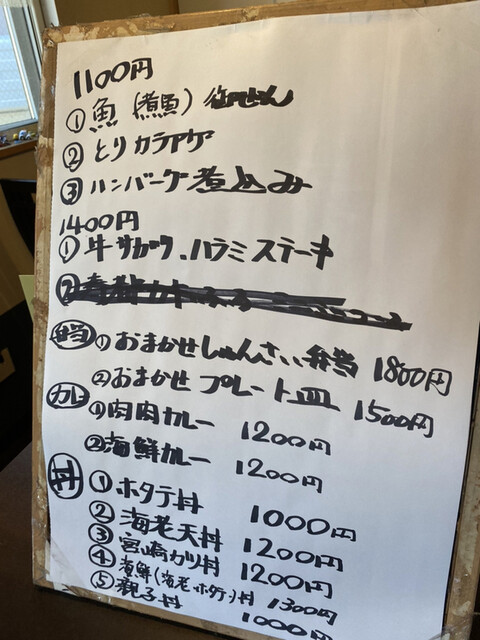 1100円
① 魚(煮魚)
② とりカラアゲ
③ ハンバーグ煮込み
1400円
① 牛サガリ、ハラミステーキ
②
弁当 ① おまかせしゅんさい弁当 1800円
② おまかせプレート皿 1500円
カレー ① 肉肉カレー 1200円
② 海鮮カレー 1200円
丼 ① ホタテ丼 1000円
② 海老天丼 1200円
③ 宮崎カツ丼 1200円
④ 海鮮(海老・ホタテ)丼 1300円
⑤ 親子丼 1000円